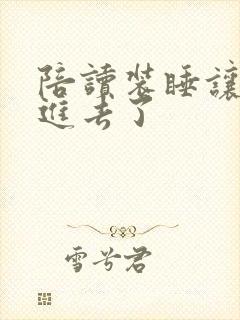 陪讀裝睡讓
進去了
雪兮君